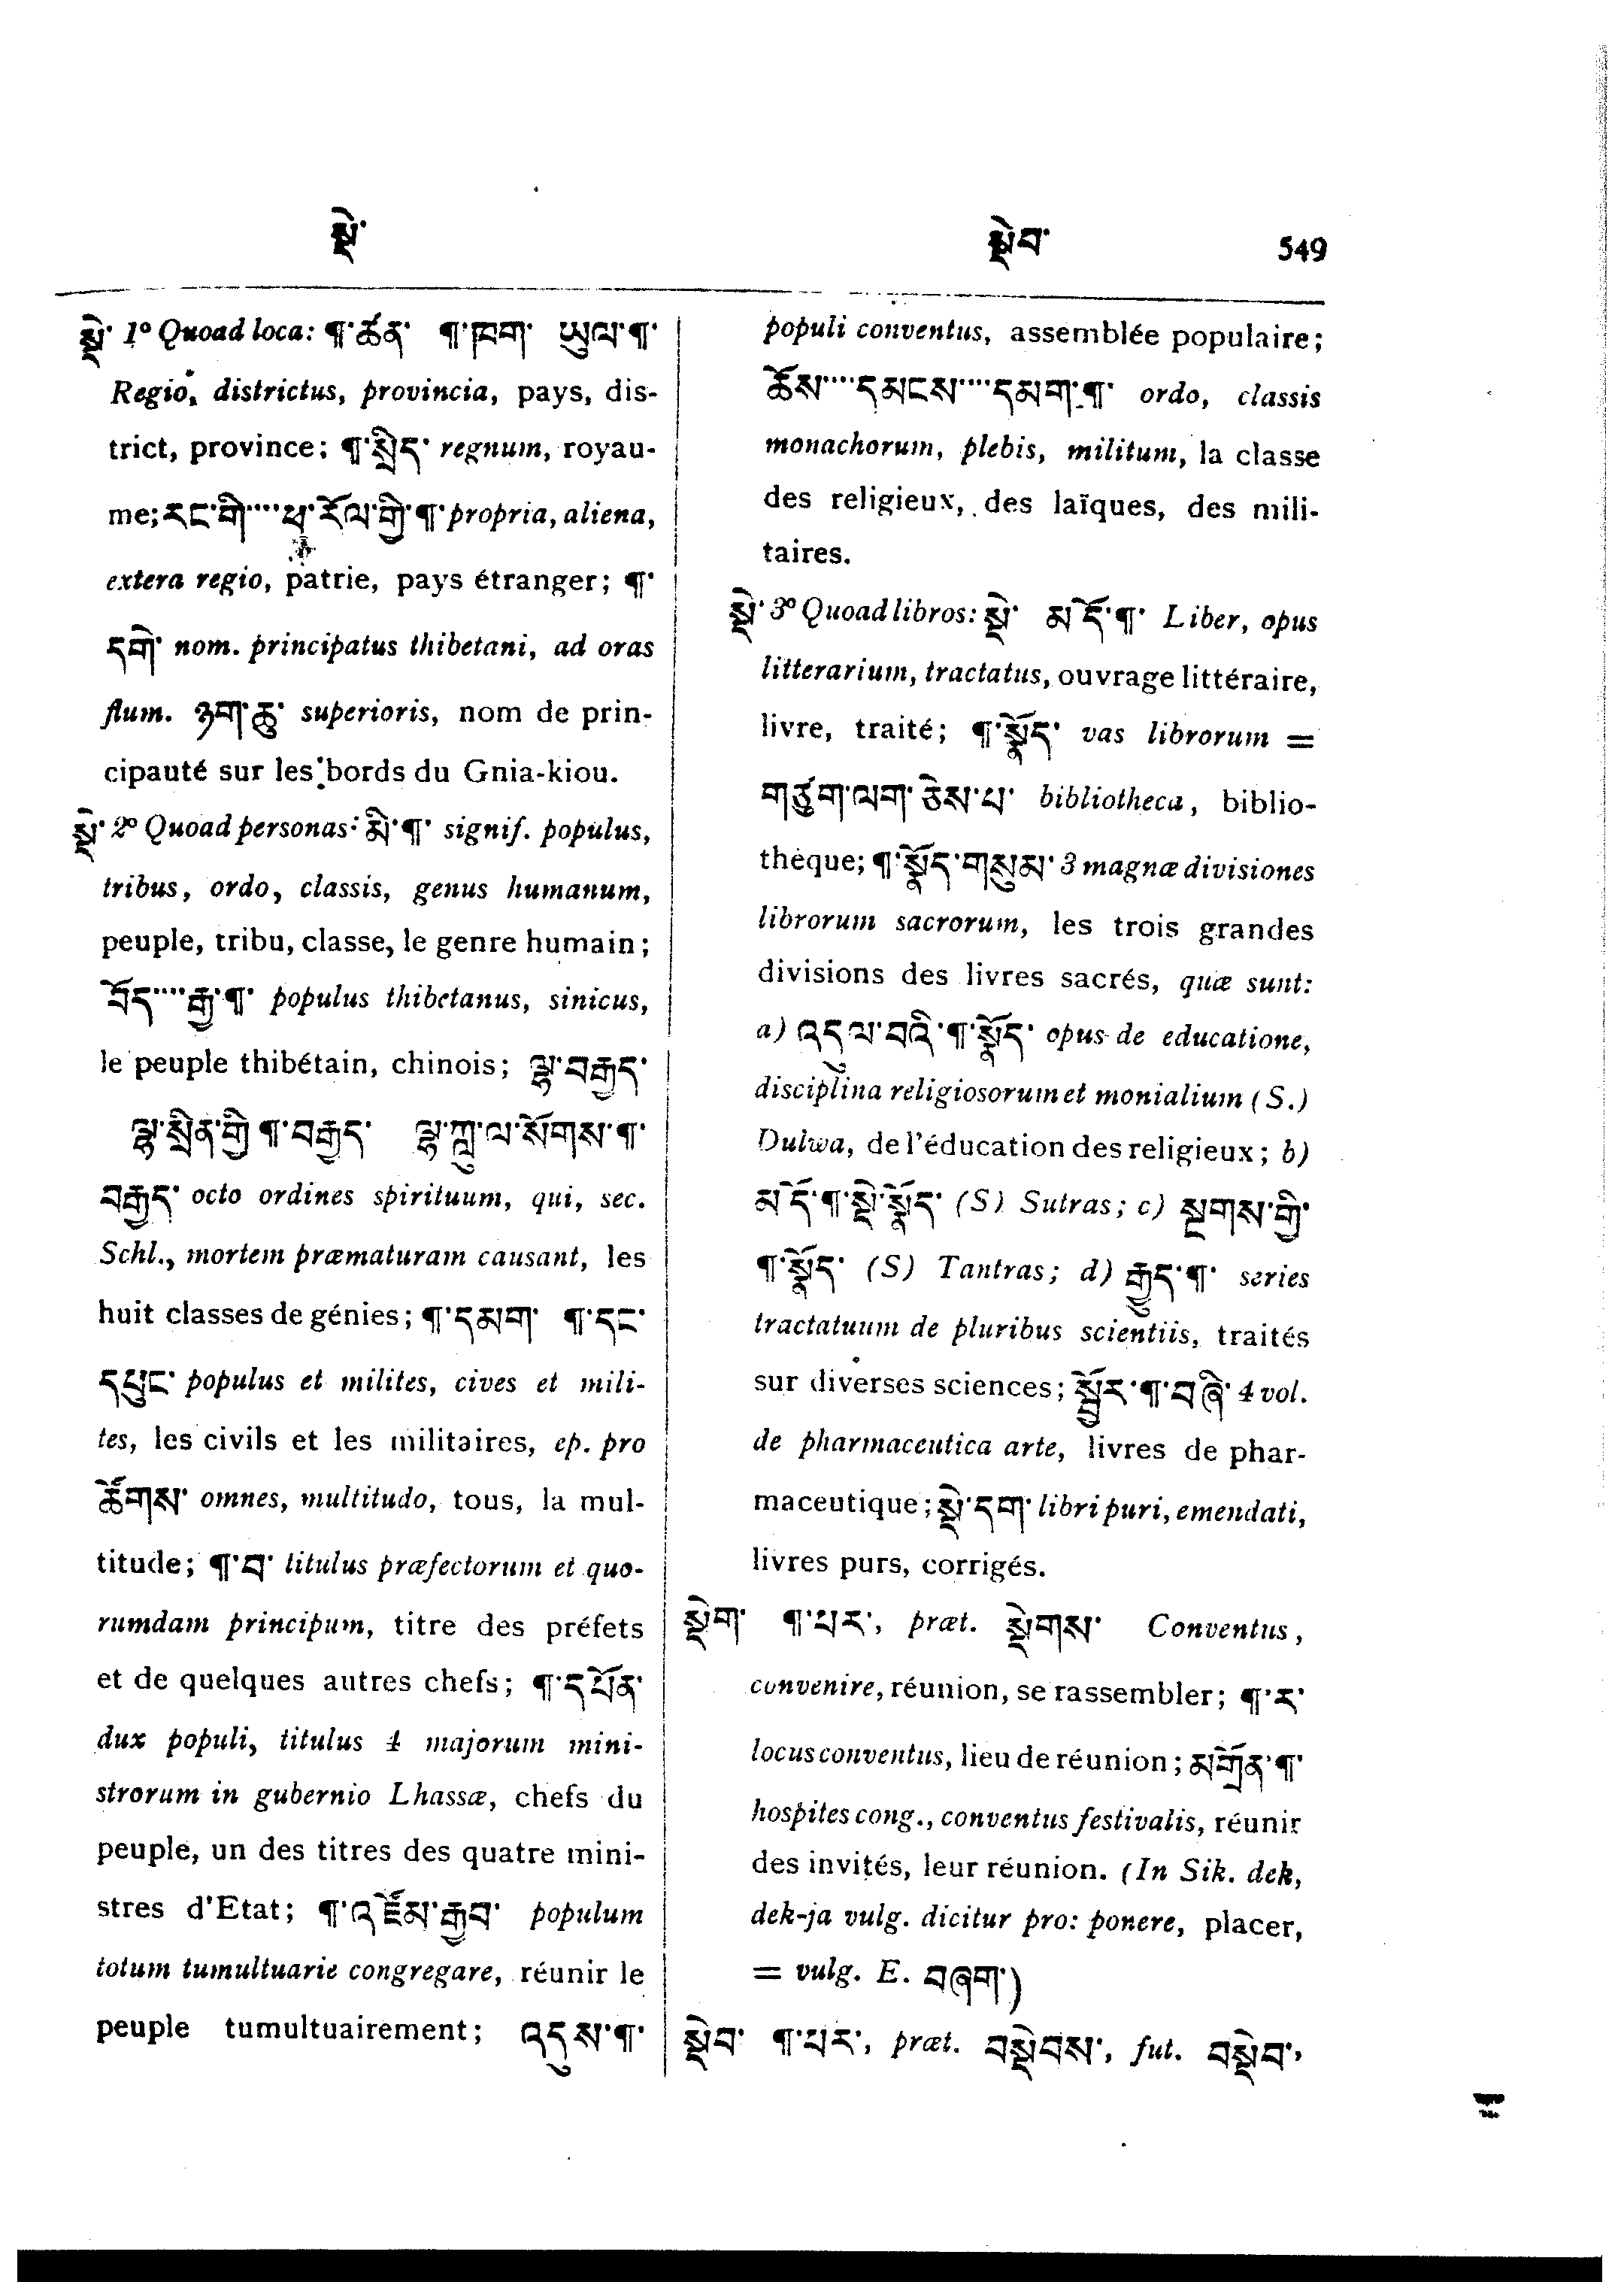 སྡེ་
སྡེབ་ 549
སྡེ་ 1º Quoad loca: ¶་ཚན་ ¶་ཁག་ ཡུལ་¶་
Regio, districtus, provincia, pays, dis-
trict, province; ¶་སྲིད་ regnum, royau-
me; རང་གི་····ཕ་རོལ་གྱི་¶་ propria, aliena,
extera regio, patrie, pays étranger; ¶་
དགེ་ nom. principatus thibetani, ad oras
flum. ཉག་ཆུ་ superioris, nom de prin-
cipauté sur les bords du Gnia-kiou.
སྡེ་ 2º Quoad personas: མི་¶་ signif. populus,
tribus, ordo, classis, genus humanum,
peuple, tribu, classe, le genre humain;
བོད་····རྒྱ་¶་ populus thibetanus, sinicus,
le peuple thibétain, chinois; ལྷ་བརྒྱད་
ལྷ་སྲིན་གྱི་¶་བརྒྱད་ ལྷ་ཀླུ་ལ་སོགས་¶་
བརྒྱད་ octo ordines spirituum, qui, sec.
Schl., mortem præmaturam causant, les
huit classes de génies; ¶་དམག་ ¶་དང་
དཔུང་ populus et milites, cives et mili-
tes, les civils et les militaires, ep. pro
ཚོགས་ omnes, multitudo, tous, la mul-
titude; ¶་བ་ titulus præfectorum et quo-
rumdam principum, titre des préfets
et de quelques autres chefs; ¶་དཔོན་
dux populi, titulus 4 majorum mini-
strorum in gubernio Lhassæ, chefs du
peuple, un des titres des quatre mini-
stres d'Etat; ¶་འཛོམ་རྒྱབ་ populum
totum tumultuarie congregare, réunir le
peuple tumultuairement; འདུས་¶་
populi conventus, assemblée populaire;
ཆོས་····དམངས་····དམག་¶་ ordo, classis
monachorum, plebis, militum, la classe
des religieux, des laïques, des mili-
taires.
སྡེ་ 3º Quoad libros: སྡེ་ མདོ་¶་ Liber, opus
litterarium, tractatus, ouvrage littéraire,
livre, traité; ¶་སྣོད་ vas librorum =
གཙུག་ལག་ཅེས་པ་ bibliotheca, biblio-
thèque; ¶་སྣོད་གསུམ་ 3 magnæ divisiones
librorum sacrorum, les trois grandes
divisions des livres sacrés, quæ sunt:
a) འདུལ་བའི་¶་སྣོད་ opus de educatione,
disciplina religiosorum et monialium (S.)
Dulwa, de l'éducation des religieux; b)
མདོ་¶་སྡེ་སྣོད་ (S) Sutras; c) སྔགས་ཀྱི་
¶་སྣོད་ (S) Tantras; d) རྒྱུད་¶་ series
tractatuum de pluribus scientiis, traités
sur diverses sciences; སྦྱོར་¶་བཞི་ 4 vol.
de pharmaceutica arte, livres de phar-
maceutique; སྡེ་དག་ libri puri, emendati,
livres purs, corrigés.
སྡེག་ ¶་པར་, præt. སྡེགས་ Conventus,
convenire, réunion, se rassembler; ¶་ར་
locus conventus, lieu de réunion; མགྲོན་¶་
hospites cong., conventus festivalis, réunir
des invités, leur réunion. (In Sik. dek,
dek-ja vulg. dicitur pro: ponere, placer,
= vulg. E. བཞག་)
སྡེབ་ ¶་པར་, præt. བསྡེབས་, fut. བསྡེབ་,